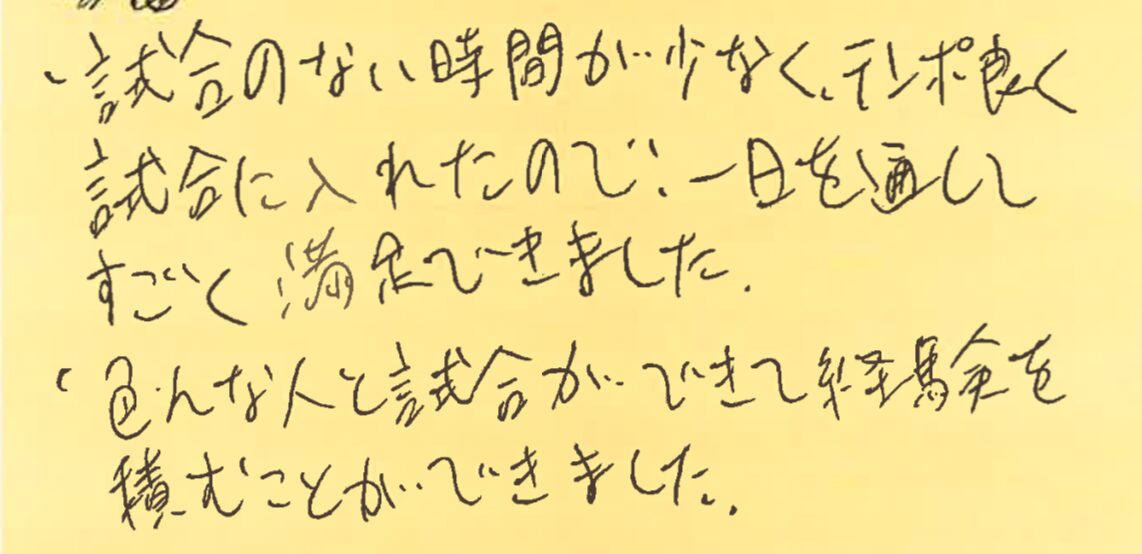 ・試合のない時間が少なく、テンポ良く
試合に入れたので、一日を通して
すごく満足できました.
・色んな人と試合ができて経験を
積むことができました.